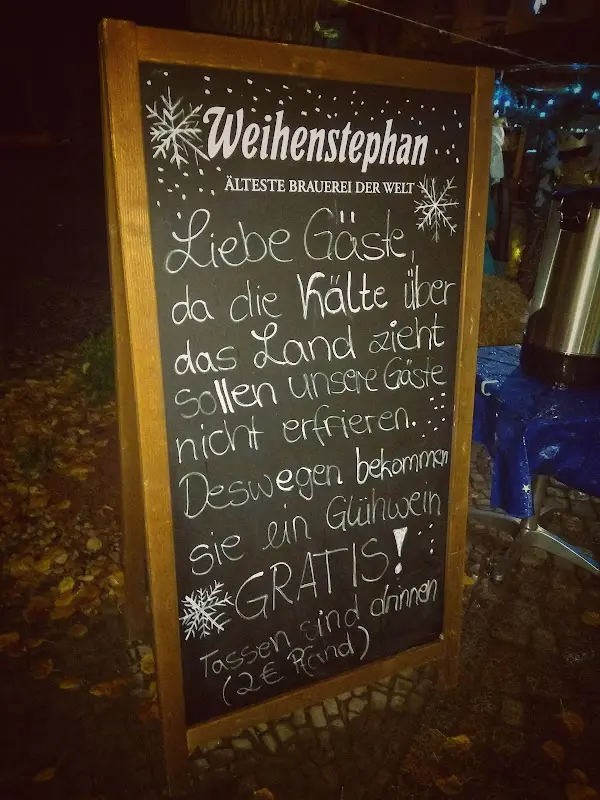 Weihenstephan
ÄLTESTE BRAUEREI DER WELT
Liebe Gäste,
da die Kälte über
das Land zieht
sollen unsere Gäste
nicht erfrieren.
Deswegen bekommen
sie ein Glühwein
GRATIS!
Tassen sind drinnen
(2€ Pfand)